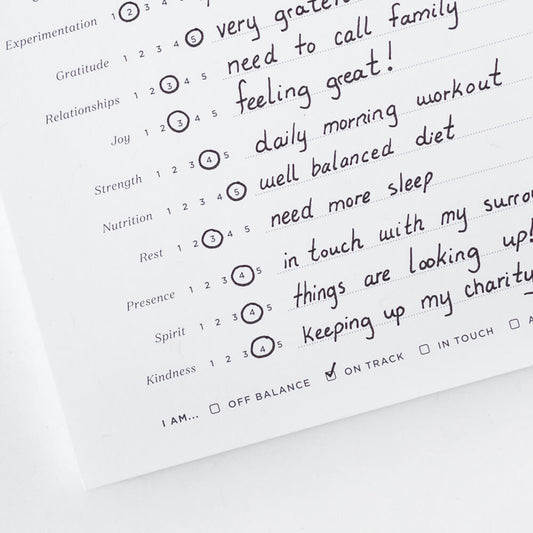 Experimentation 1 2 3
Gratitude 1 2 3 4 5 very
Relationships 1 2 3 4 5 need to call family
Joy 1 2 3 4 5 feeling great!
Strength 1 2 3 4 5 daily morning workout
Nutrition 1 2 3 4 5 well balanced diet
Rest 1 2 3 4 5 need more sleep
Presence 1 2 3 4 5 in touch with my
Spirit 1 2 3 4 5 things are looking up!
Kindness 1 2 3 4 5 keeping up my charity
I AM... OFF BALANCE ON TRACK IN TOUCH